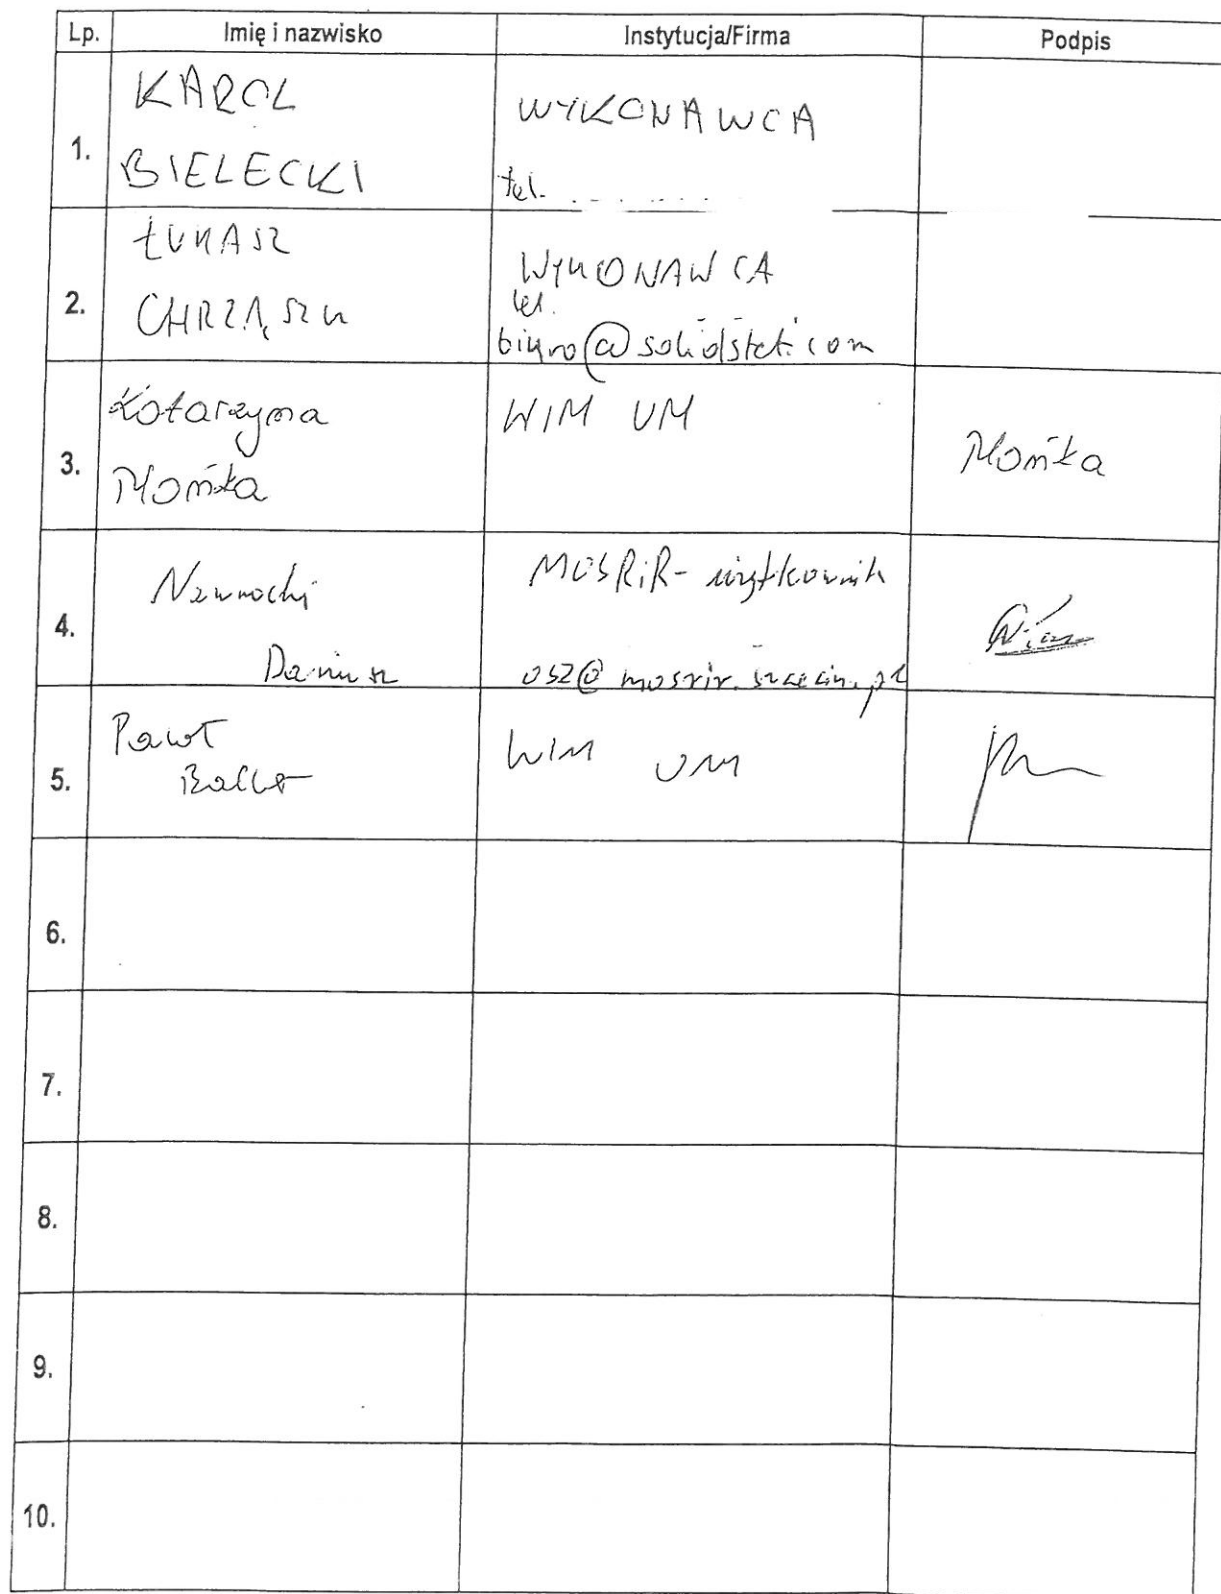 Lp. Imię i nazwisko Instytucja/Firma Podpis
1. KAROL BIELECKI WYKONAWCA
tel.
2. ŁUKASZ CHRZĄSZK WYKONAWCA
tel.
biuro@solidstet.com
3. Katarzyna Płońska WIM UM Płońska
4. Nawrocki Dariusz MOSRiR - użytkownik
osz@mosrir.szczecin.pl
5. Paweł WIM UM
6.
7.
8.
9.
10.